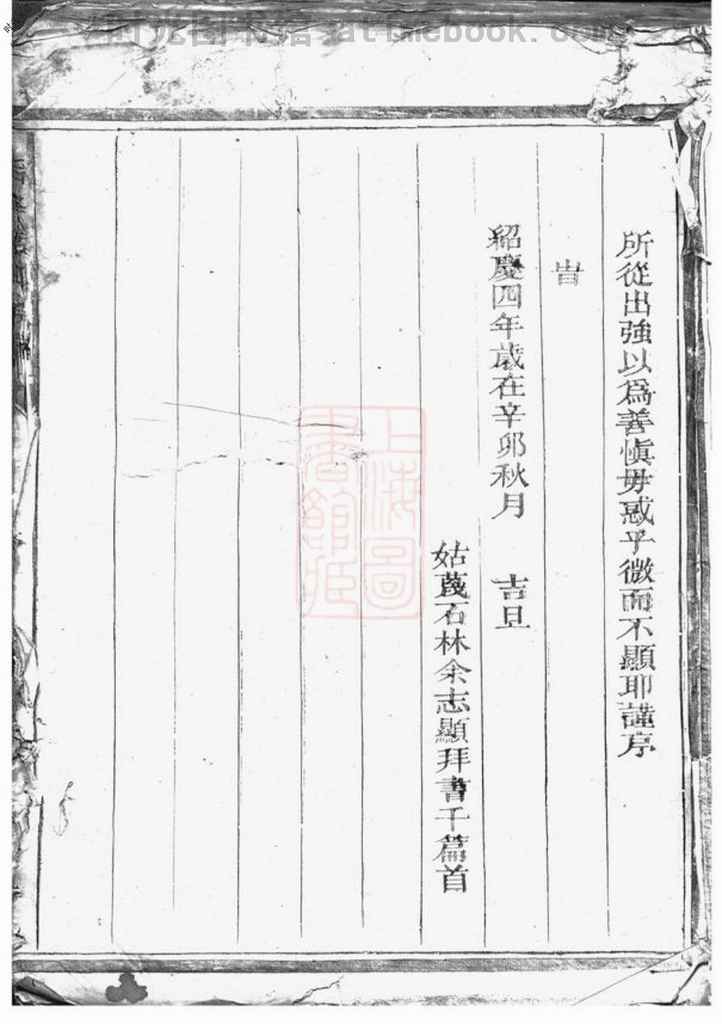 所從出強以爲善愼毋惑乎微而不顯耶謹序
旹
紹慶四年歲在辛卯秋月 吉旦
姑蔑石林余志顯拜書于篇首
上海圖書館藏
时光图书馆 atimebook.com